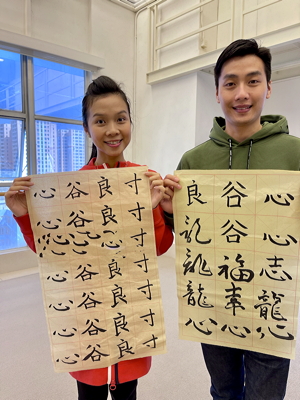 心 谷 良 寸
心 谷 良 寸
心 心 心 寸
心 谷 良 寸
心 谷 良 寸
心 谷 良 寸
心 谷 良 寸
良 谷 心
谷 心
福 志
龍 龍
心 心 心